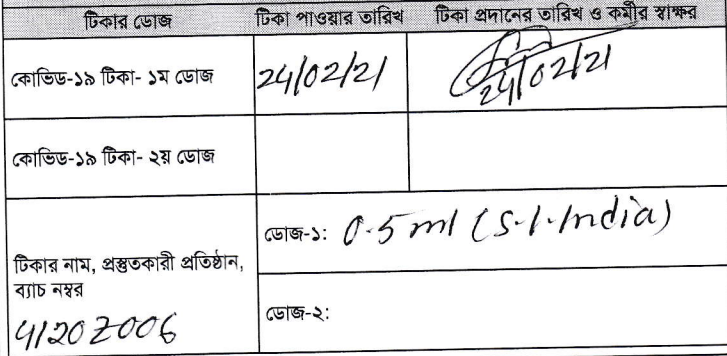 টিকার ডোজ টিকা পাওয়ার তারিখ টিকা প্রদানের তারিখ ও কর্মীর স্বাক্ষর
কোভিড-১৯ টিকা- ১ম ডোজ 24/02/21 24/02/21
কোভিড-১৯ টিকা- ২য় ডোজ
টিকার নাম, প্রস্তুতকারী প্রতিষ্ঠান,
ব্যাচ নম্বর
4120Z006
ডোজ-১: 0.5 ml (S.I.India)
ডোজ-২: